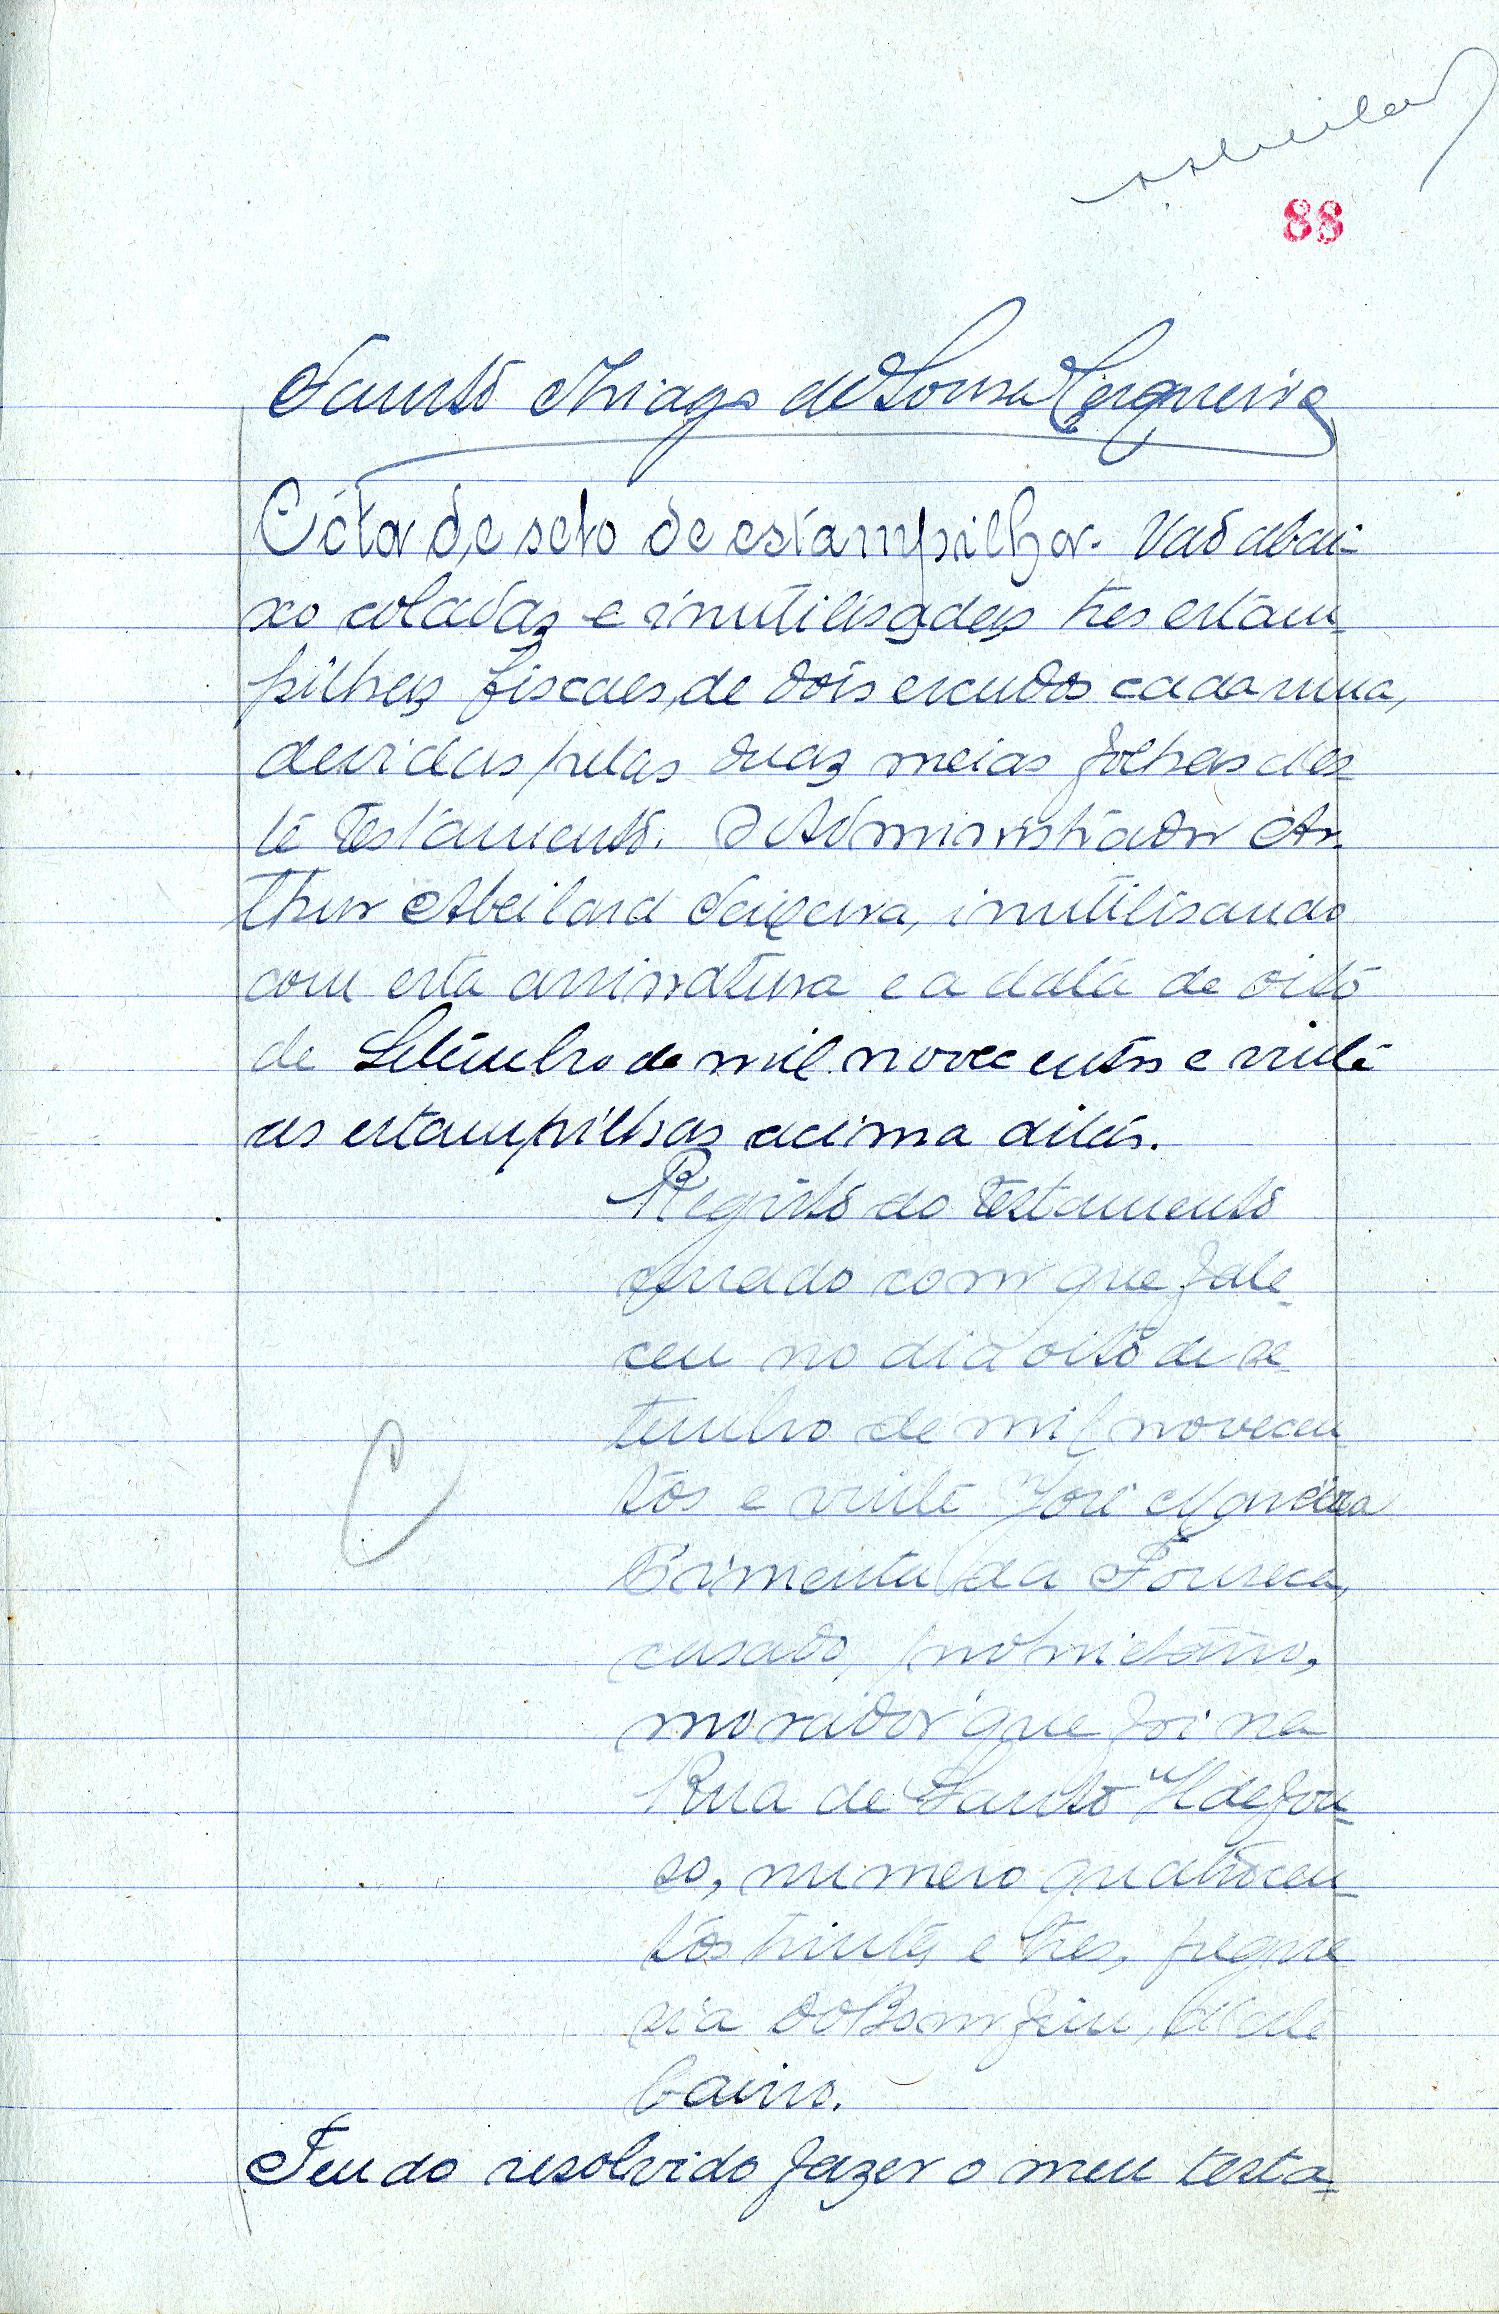 Abeilard
88
Fausto Thiago de Sousa Cerqueira
Cóta de selo de estampilha. Vaõ abai-
xo coladas e inutilisadas tres estam-
pilhas fiscaes, de dois escudos cada uma,
devidas pelas duas meias folhas des-
te testamento. O Administrador Ar-
thur Abeilard Teixeira, inutilisando
com esta assinatura e a data de oito
de Setembro de mil novecentos e vinte
as estampilhas acima ditas.
Registo do testamento
cerrado com que fale-
ceu no dia oito de se-
tembro de mil novecen-
tos e vinte José Moreira
Pimenta da Fonseca,
casado, proprietario,
morador que foi na
Rua de Santo Ildefon-
so, numero quatrocen-
tos trinta e tres, fregue-
sia do Bomfim, deste
bairro.
Tendo resolvido fazer o meu testa-